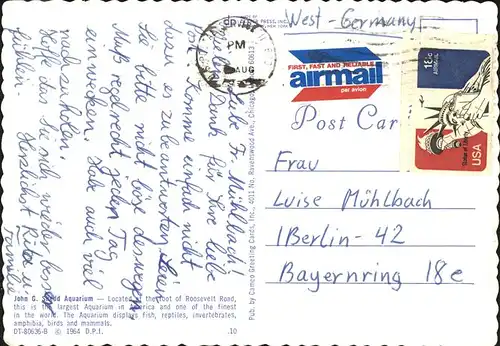 West-Germany
PM
AUG
FIRST, FAST AND RELIABLE
airmail
par avion
18c
USA
Post Car
Frau
Luise Mühlbach
1Berlin-42
Bayernring 18e
Liebe Fr. Mühlbach!
Vielen Dank für Ihre liebe
Post. Komme einfach nicht
dazu es zu beantworten. Seien
Sie bitte nicht böse deswegen.
Muß regelrecht jeden Tag
eingehen. Habe auch viel
nachzuholen.
Hoffe du sich wieder besser
fühlen. Herzlichst Rita u.
Familie
John G. Shedd Aquarium — Located at the foot of Roosevelt Road,
this is the largest Aquarium in America and one of the finest
in the world. The Aquarium displays fish, reptiles, invertebrates,
amphibia, birds and mammals.
DT-80636-B © 1964 D.P.I.
.10
Pub. by Cameo Greeting Cards, Inc., 4011 No. Ravenswood Ave., Chicago, 60613